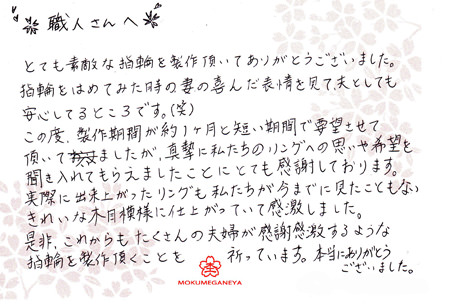 職人さんへ
とても素敵な指輪を製作頂いてありがとうございました。
指輪をはめてみた時の妻の喜んだ表情を見て、夫としても
安心してるところです。(笑)
この度、製作期間が約1ヶ月と短い期間で要望させて
頂いてましたが、真摯に私たちのリングへの思いや希望を
聞き入れてもらえましたことにとても感謝しております。
実際に出来上がったリングも私たちが今までに見たこともない
きれいな木目模様に仕上がっていて感激しました。
是非、これからもたくさんの夫婦が感謝感激するような
指輪を製作頂くことを 祈っています。本当にありがとう
ございました。
MOKUMEGANEYA